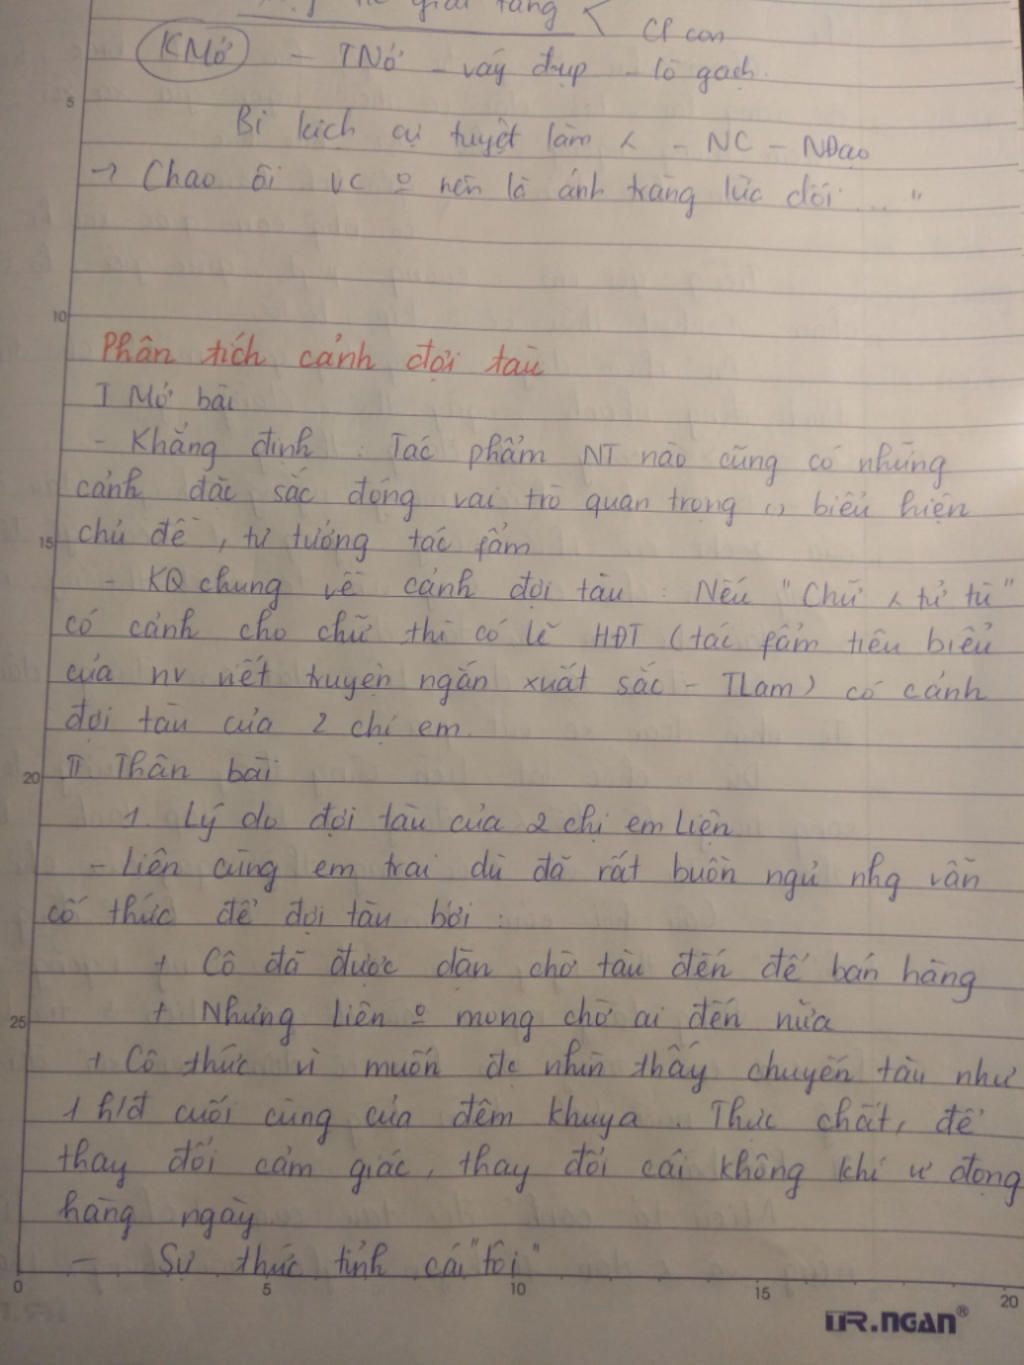 giải tầng < CP con
KMở - TNở - váy đụp - lò gạch.
Bi kịch cự tuyệt làm < - NC - NĐạo
→ Chao ôi VC º nên là ánh trăng lừa dối ... "
10
Phân tích cảnh đợi tàu
I Mở bài
- Khẳng định : Tác phẩm NT nào cũng có những
cảnh đặc sắc đóng vai trò quan trọng () biểu hiện
chủ đề, tư tưởng tác fẩm
- KQ chung về cảnh đợi tàu : Nếu "Chữ < tử tù"
có cảnh cho chữ thì có lẽ HĐT (tác fẩm tiêu biểu
của nv viết truyện ngắn xuất sắc - TLam) có cảnh
đợi tàu của 2 chị em.
II Thân bài
1. Lý do đợi tàu của 2 chị em Liên
- Liên cùng em trai dù đã rất buồn ngủ nhg vẫn
cố thức để đợi tàu bởi :
+ Cô đã được dặn chờ tàu đến để bán hàng
+ Nhưng Liên º mong chờ ai đến nữa
+ Cô thức vì muốn đc nhìn thấy chuyến tàu như
1 h/đ cuối cùng của đêm khuya. Thực chất, để
thay đổi cảm giác, thay đổi cái không khí ư đọng
hàng ngày
- Sự thức tỉnh cái "tôi"
0 5 10 15 20
TR.NGAN®